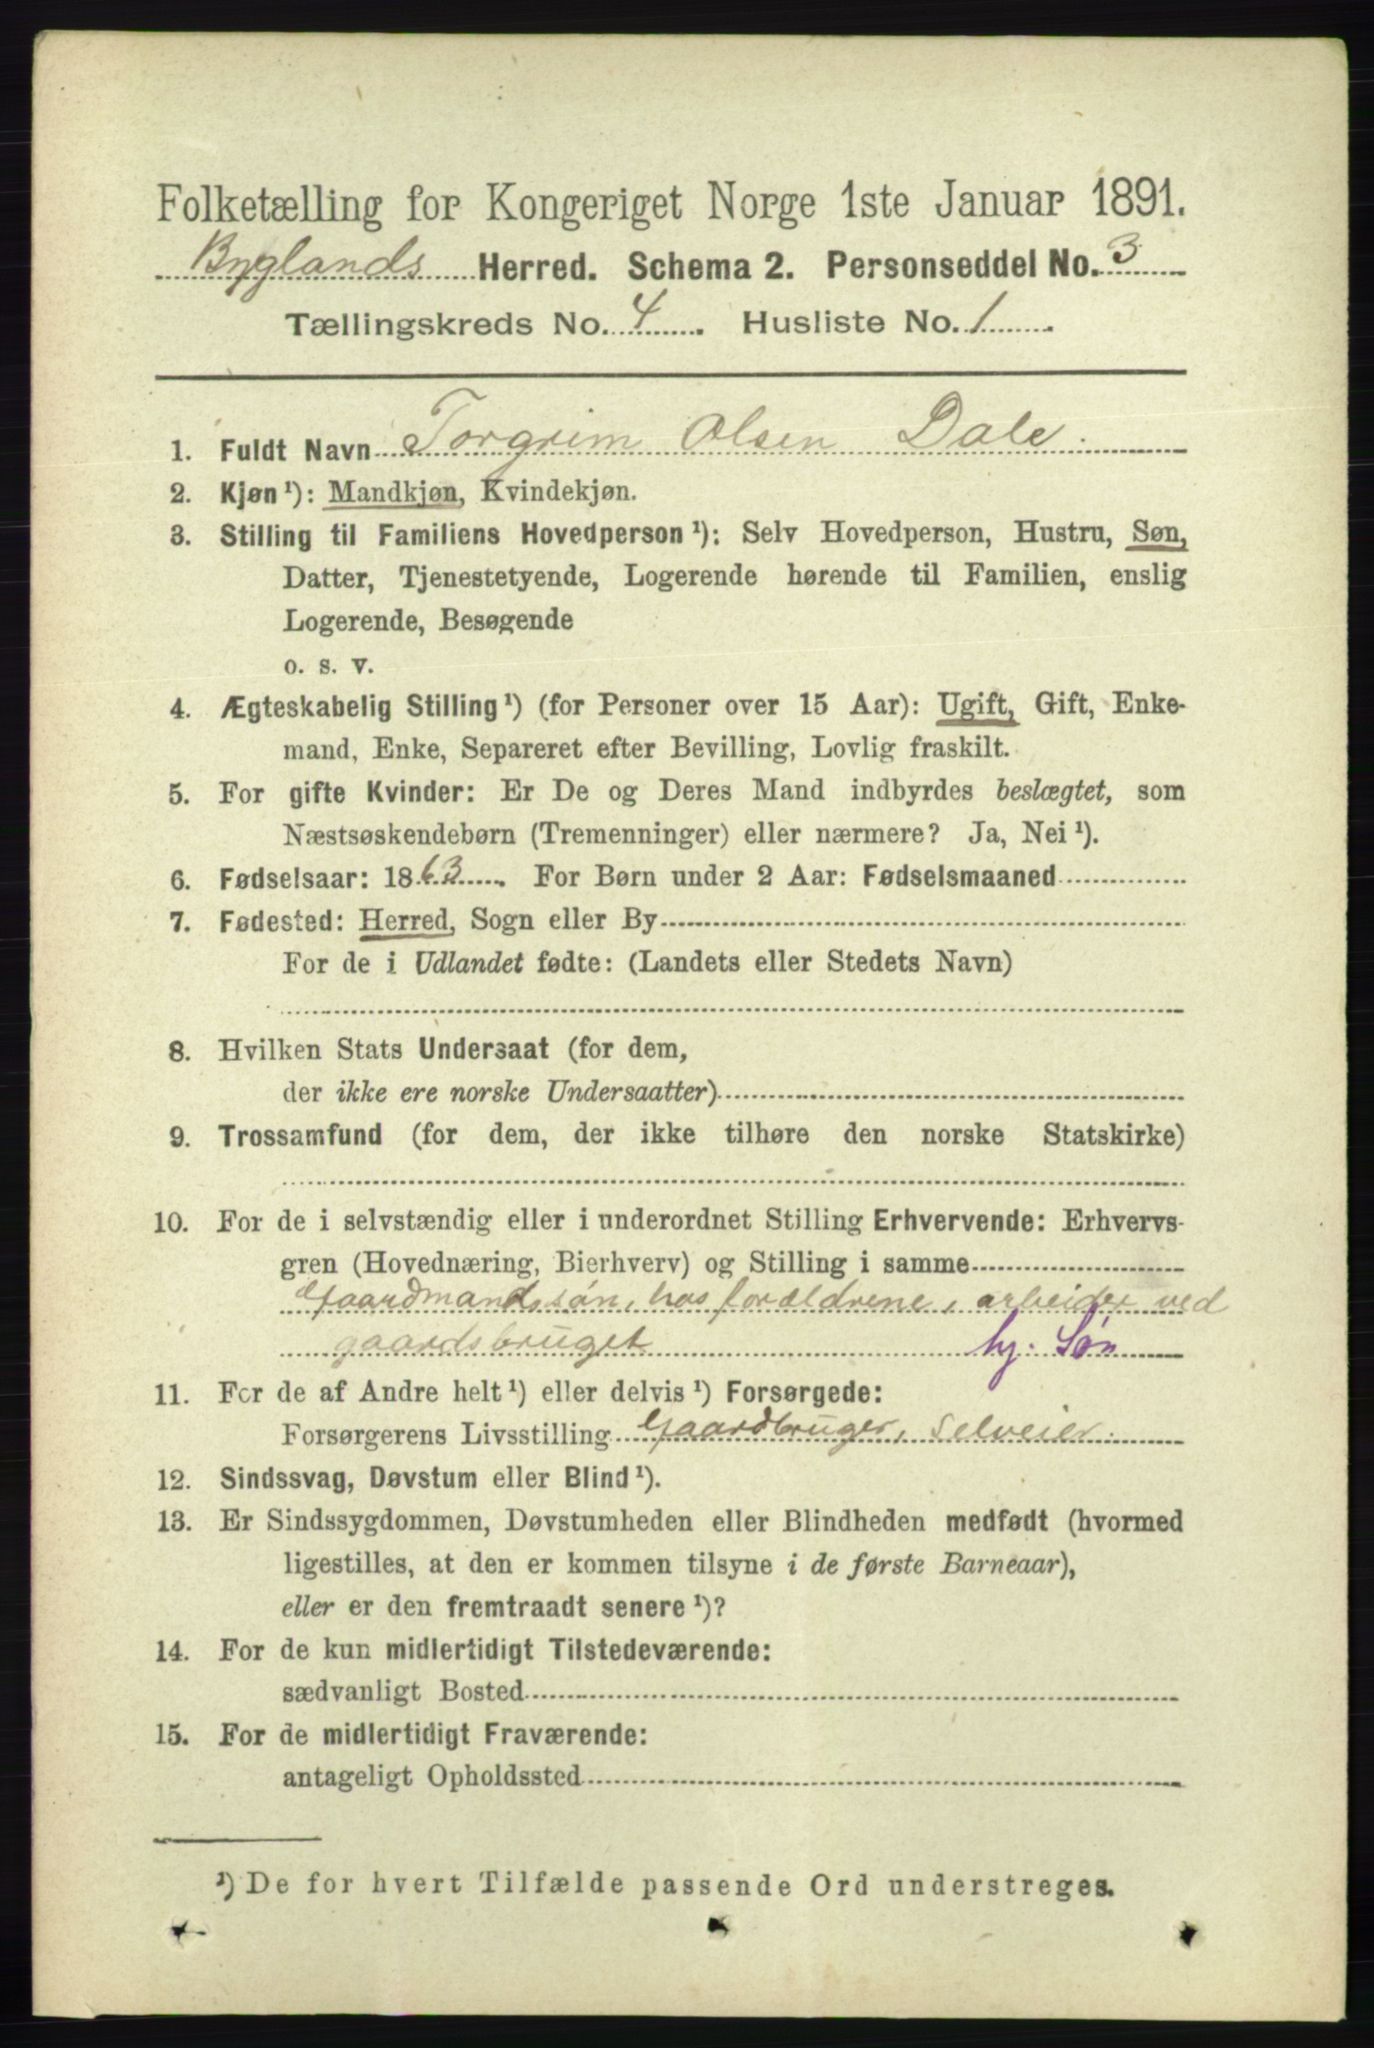 Folketælling for Kongeriget Norge 1ste Januar 1891.
Byglands Herred. Schema 2. Personseddel No. 3
Tællingskreds No. 4. Husliste No. 1.
1. Fuldt Navn Torgrim Olsen Dale.
2. Kjøn ¹): Mandkjøn, Kvindekjøn.
3. Stilling til Familiens Hovedperson ¹): Selv Hovedperson, Hustru, Søn,
Datter, Tjenestetyende, Logerende hørende til Familien, enslig
Logerende, Besøgende
o. s. v.
4. Ægteskabelig Stilling ¹) (for Personer over 15 Aar): Ugift, Gift, Enke-
mand, Enke, Separeret efter Bevilling, Lovlig fraskilt.
5. For gifte Kvinder: Er De og Deres Mand indbyrdes beslægtet, som
Næstsøskendebørn (Tremenninger) eller nærmere? Ja, Nei ¹).
6. Fødselsaar: 1863. For Børn under 2 Aar: Fødselsmaaned
7. Fødested: Herred, Sogn eller By
For de i Udlandet fødte: (Landets eller Stedets Navn)
8. Hvilken Stats Undersaat (for dem,
der ikke ere norske Undersaatter)
9. Trossamfund (for dem, der ikke tilhøre den norske Statskirke)
10. For de i selvstændig eller i underordnet Stilling Erhvervende: Erhvervs-
gren (Hovednæring, Bierhverv) og Stilling i samme
Gaardmandssøn, hos forældrene, arbeider ved
gaardsbruget hj. Søn
11. For de af Andre helt ¹) eller delvis ¹) Forsørgede:
Forsørgerens Livsstilling Gaardbruger, selveier.
12. Sindssvag, Døvstum eller Blind ¹).
13. Er Sindssygdommen, Døvstumheden eller Blindheden medfødt (hvormed
ligestilles, at den er kommen tilsyne i de første Barneaar),
eller er den fremtraadt senere ¹)?
14. For de kun midlertidigt Tilstedeværende:
sædvanligt Bosted
15. For de midlertidigt Fraværende:
antageligt Opholdssted
¹) De for hvert Tilfælde passende Ord understreges.